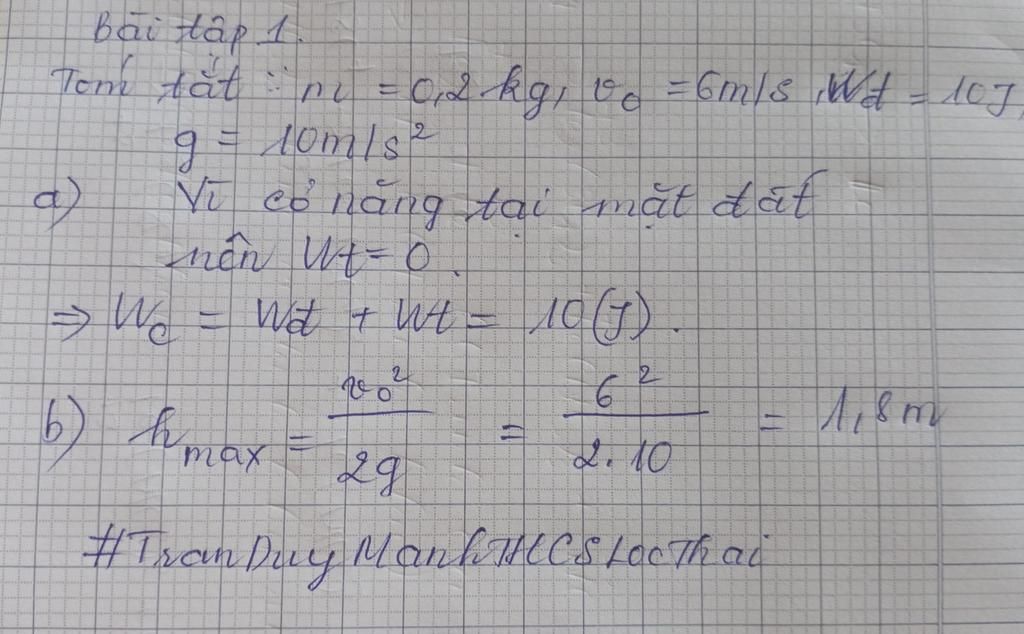 Bài tập 1.
Tóm tắt : m = 0,2 kg, v₀ = 6m/s, Wđ = 10J,
g = 10m/s²
a) Vì cơ năng tại mặt đất
nên Wt = 0.
⇒ Wc = Wđ + Wt = 10 (J).
b) hmax = v₀²/2g = 6²/2.10 = 1,8m
#TranDuyManhTHCSLocThai